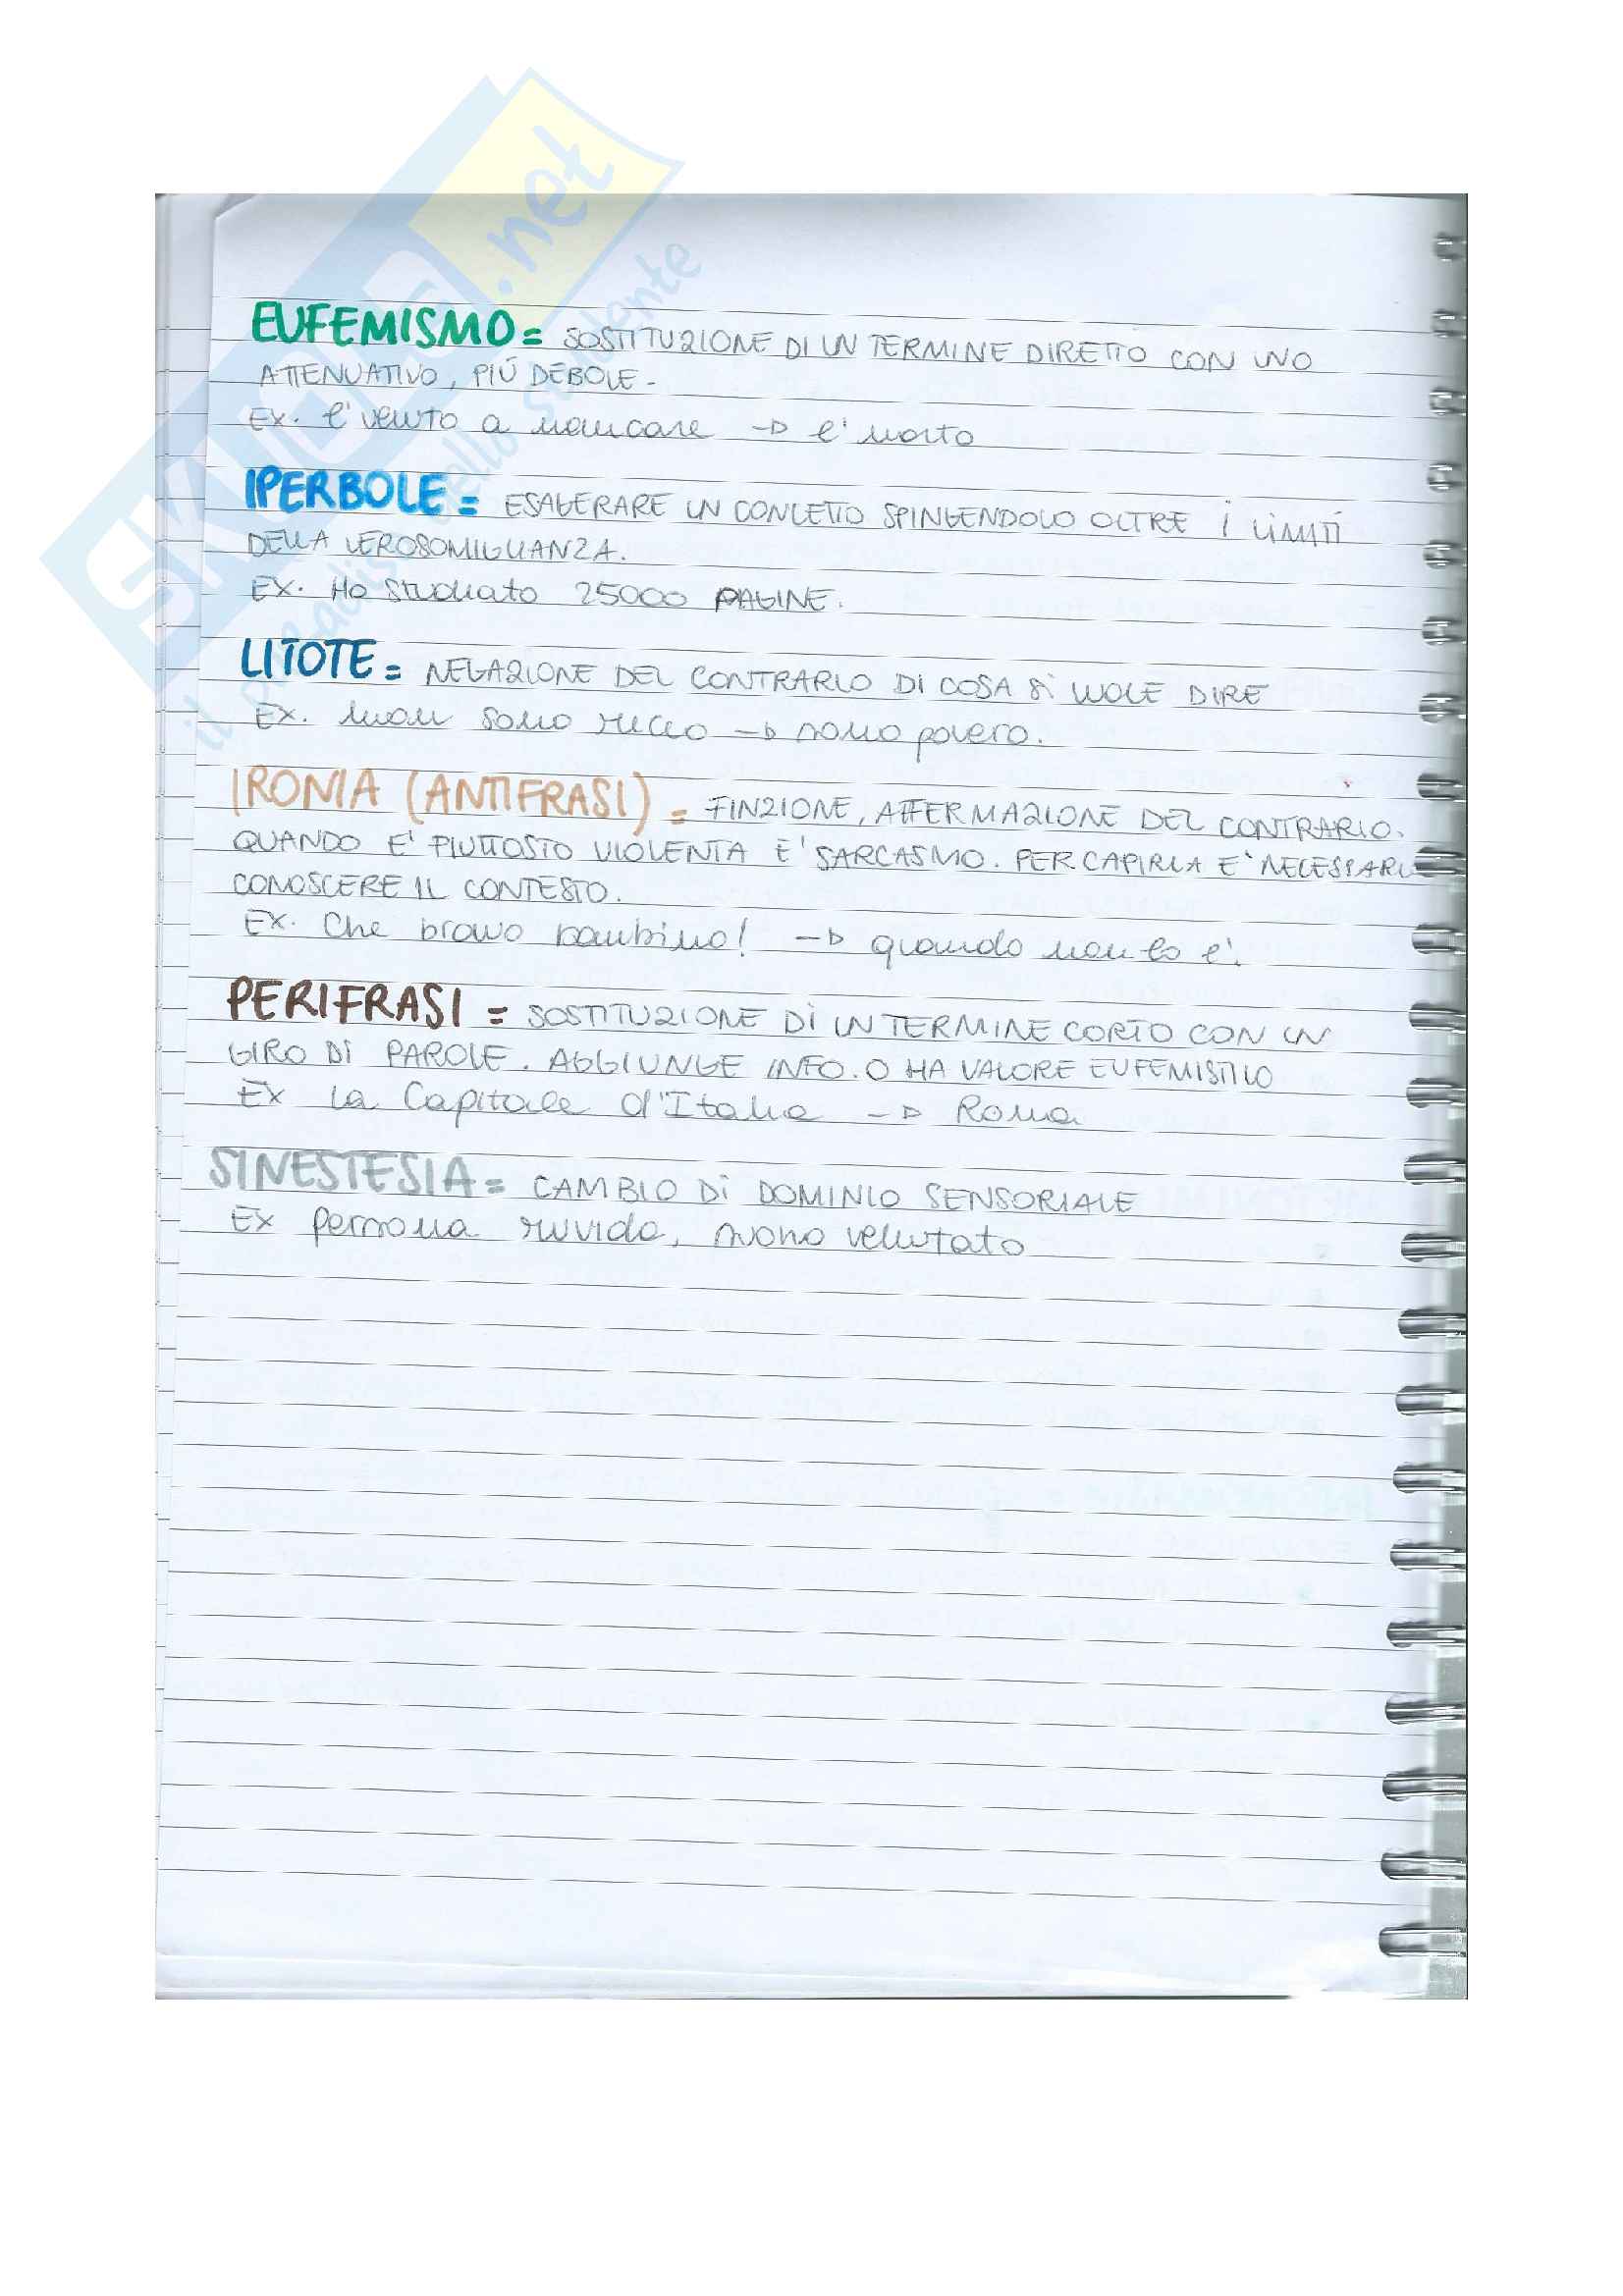 EUFEMISMO = SOSTITUZIONE DI UN TERMINE DIRETTO CON UNO
ATTENUATIVO, PIÚ DEBOLE.
EX. E' venuto a mancare → e' morto
IPERBOLE = ESAGERARE UN CONCETTO SPINGENDOLO OLTRE I LIMITI
DELLA VEROSOMIGLIANZA.
EX. Ho studiato 25000 PAGINE.
LITOTE = NEGAZIONE DEL CONTRARIO DI COSA SI VUOLE DIRE
EX. non sono ricco → sono povero.
IRONIA (ANTIFRASI) = FINZIONE, AFFERMAZIONE DEL CONTRARIO.
QUANDO E' PIUTTOSTO VIOLENTA E' SARCASMO. PER CAPIRLA E' NECESSARIO
CONOSCERE IL CONTESTO.
EX. Che bravo bambino! → quando non lo e'.
PERIFRASI = SOSTITUZIONE DI UN TERMINE CORTO CON UN
GIRO DI PAROLE. AGGIUNGE INFO. O HA VALORE EUFEMISTICO
EX La Capitale d'Italia → Roma
SINESTESIA = CAMBIO DI DOMINIO SENSORIALE
EX persona ruvida, suono vellutato
SKUOLA.net
il paradiso dello studente